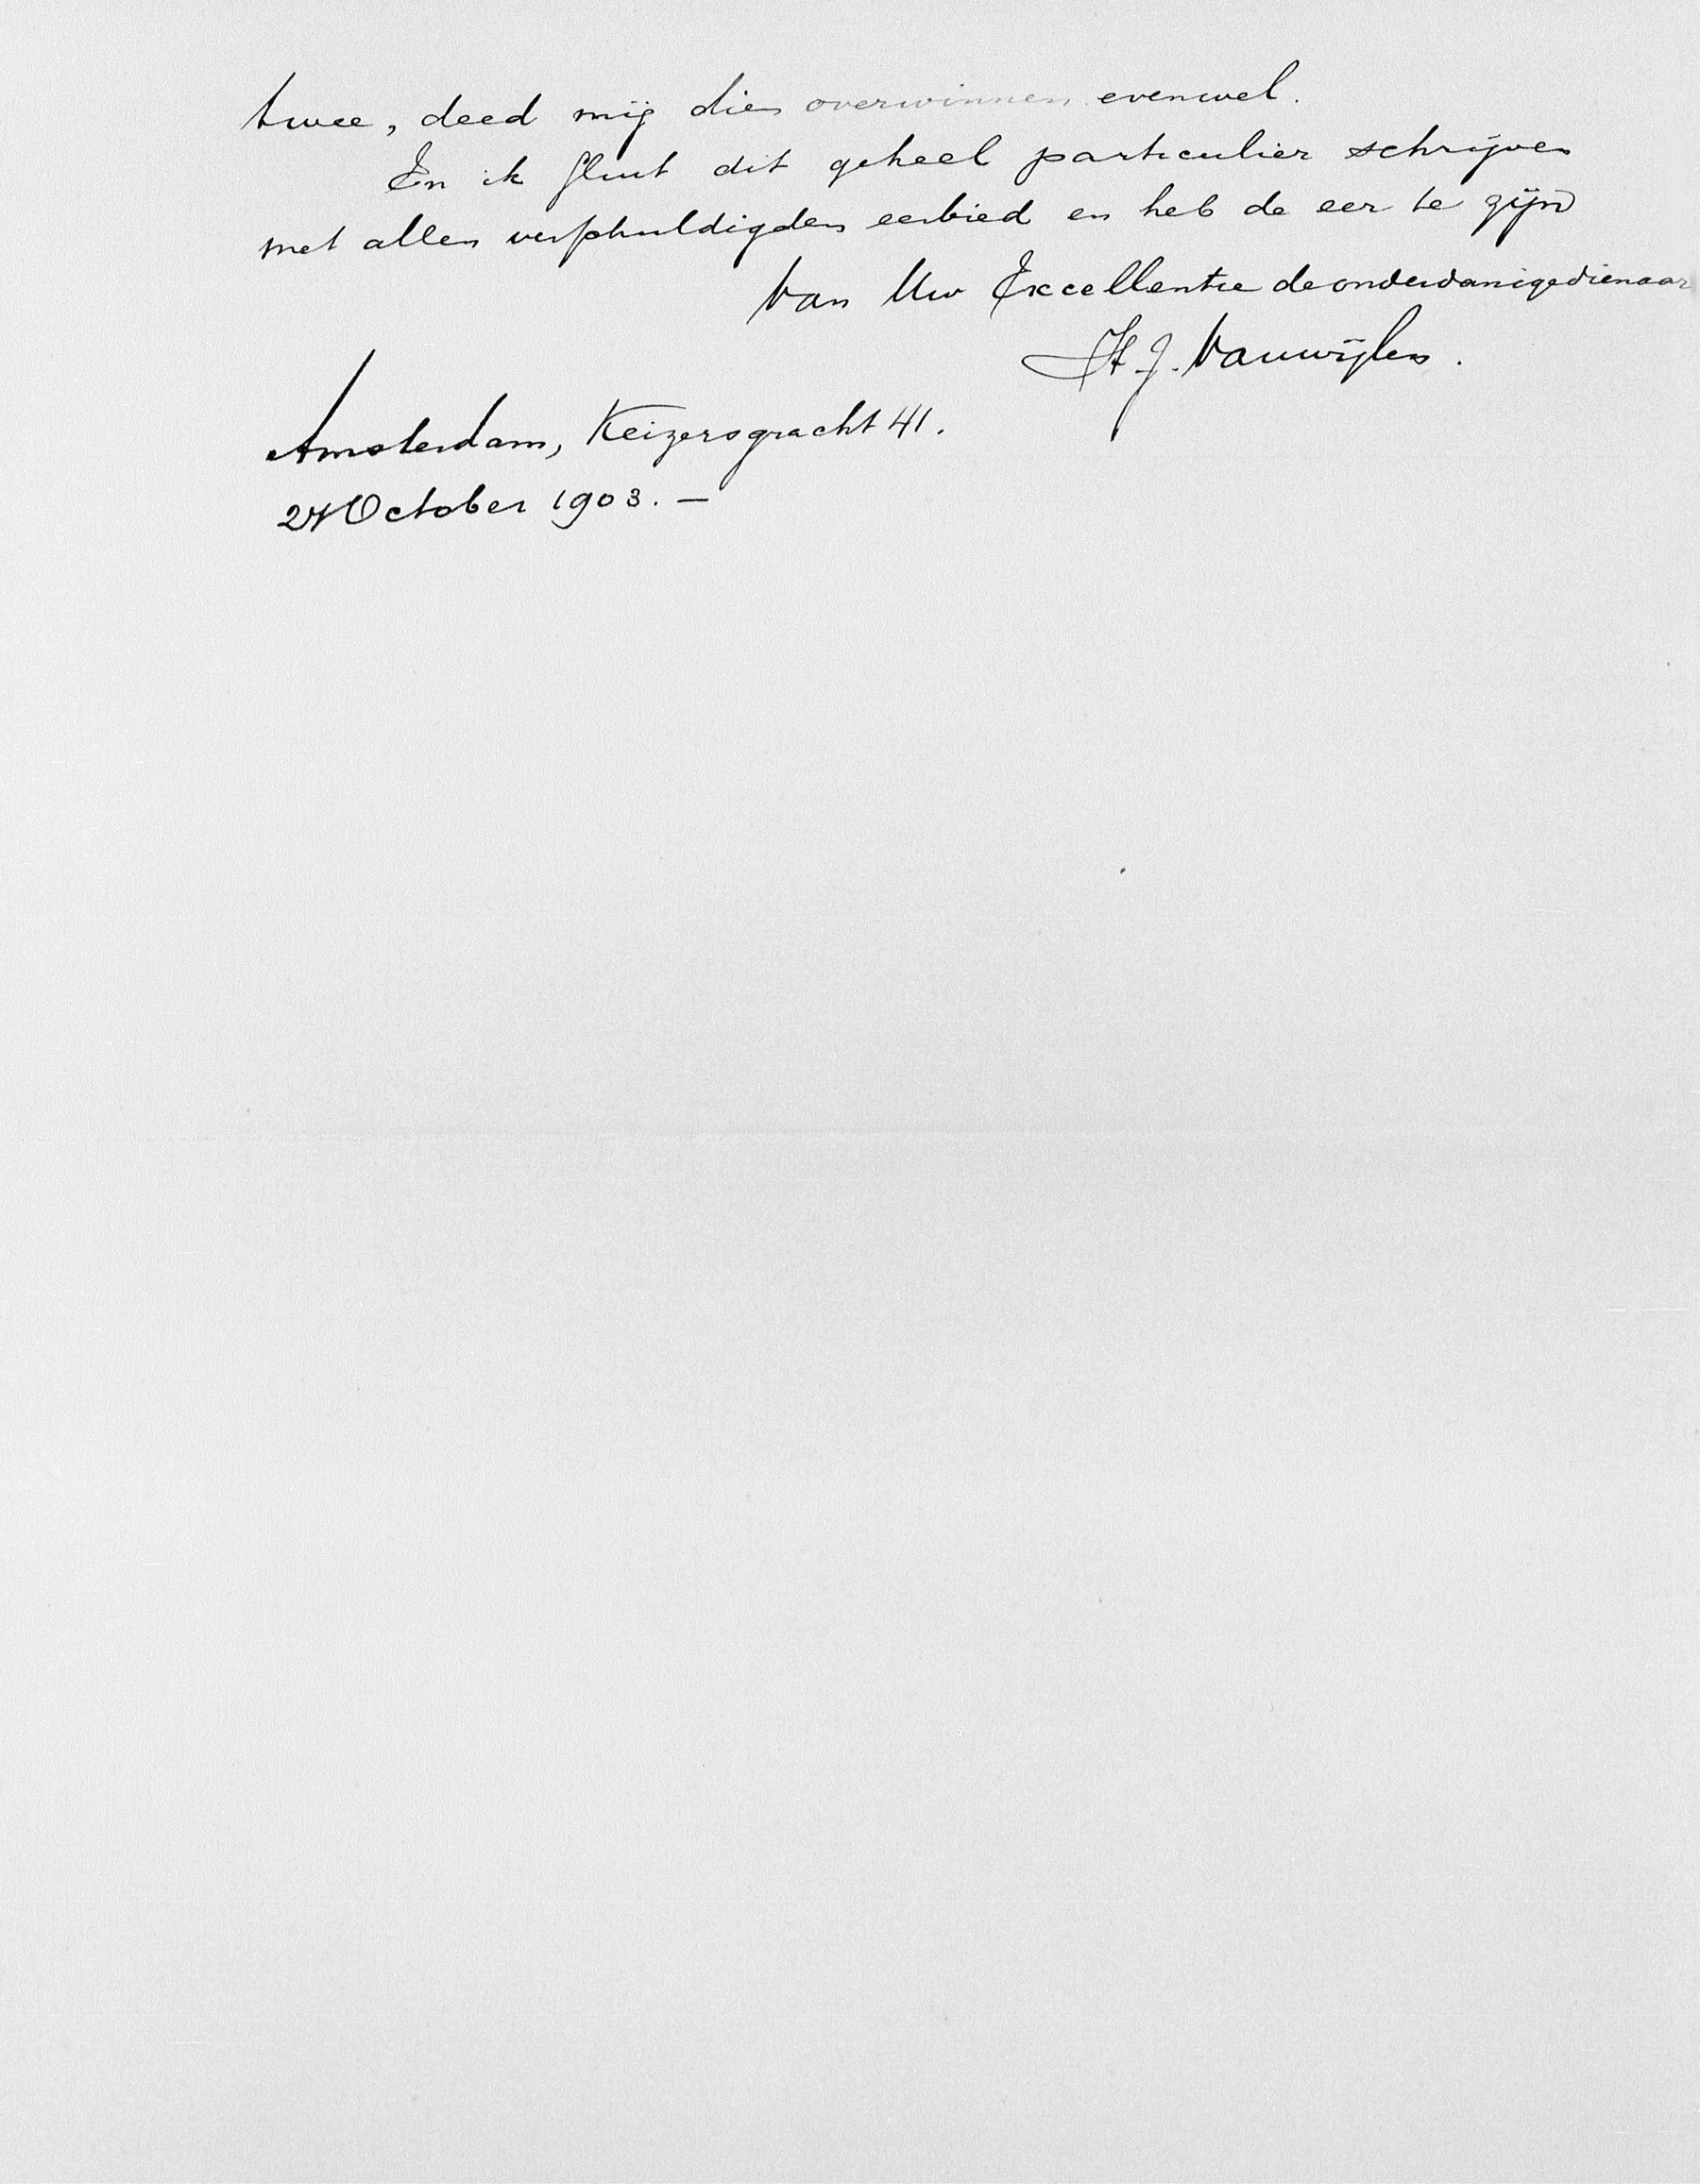 twee, deed mij dien overwinnen evenwel.
En ik sluit dit geheel particulier schrijven
met allen verschuldigden eerbied en heb de eer te zijn
Van Uw Excellentie de onderdanige dienaar
H. J. Vanwijlen.
Amsterdam, Keizersgracht 41.
24 October 1903. —